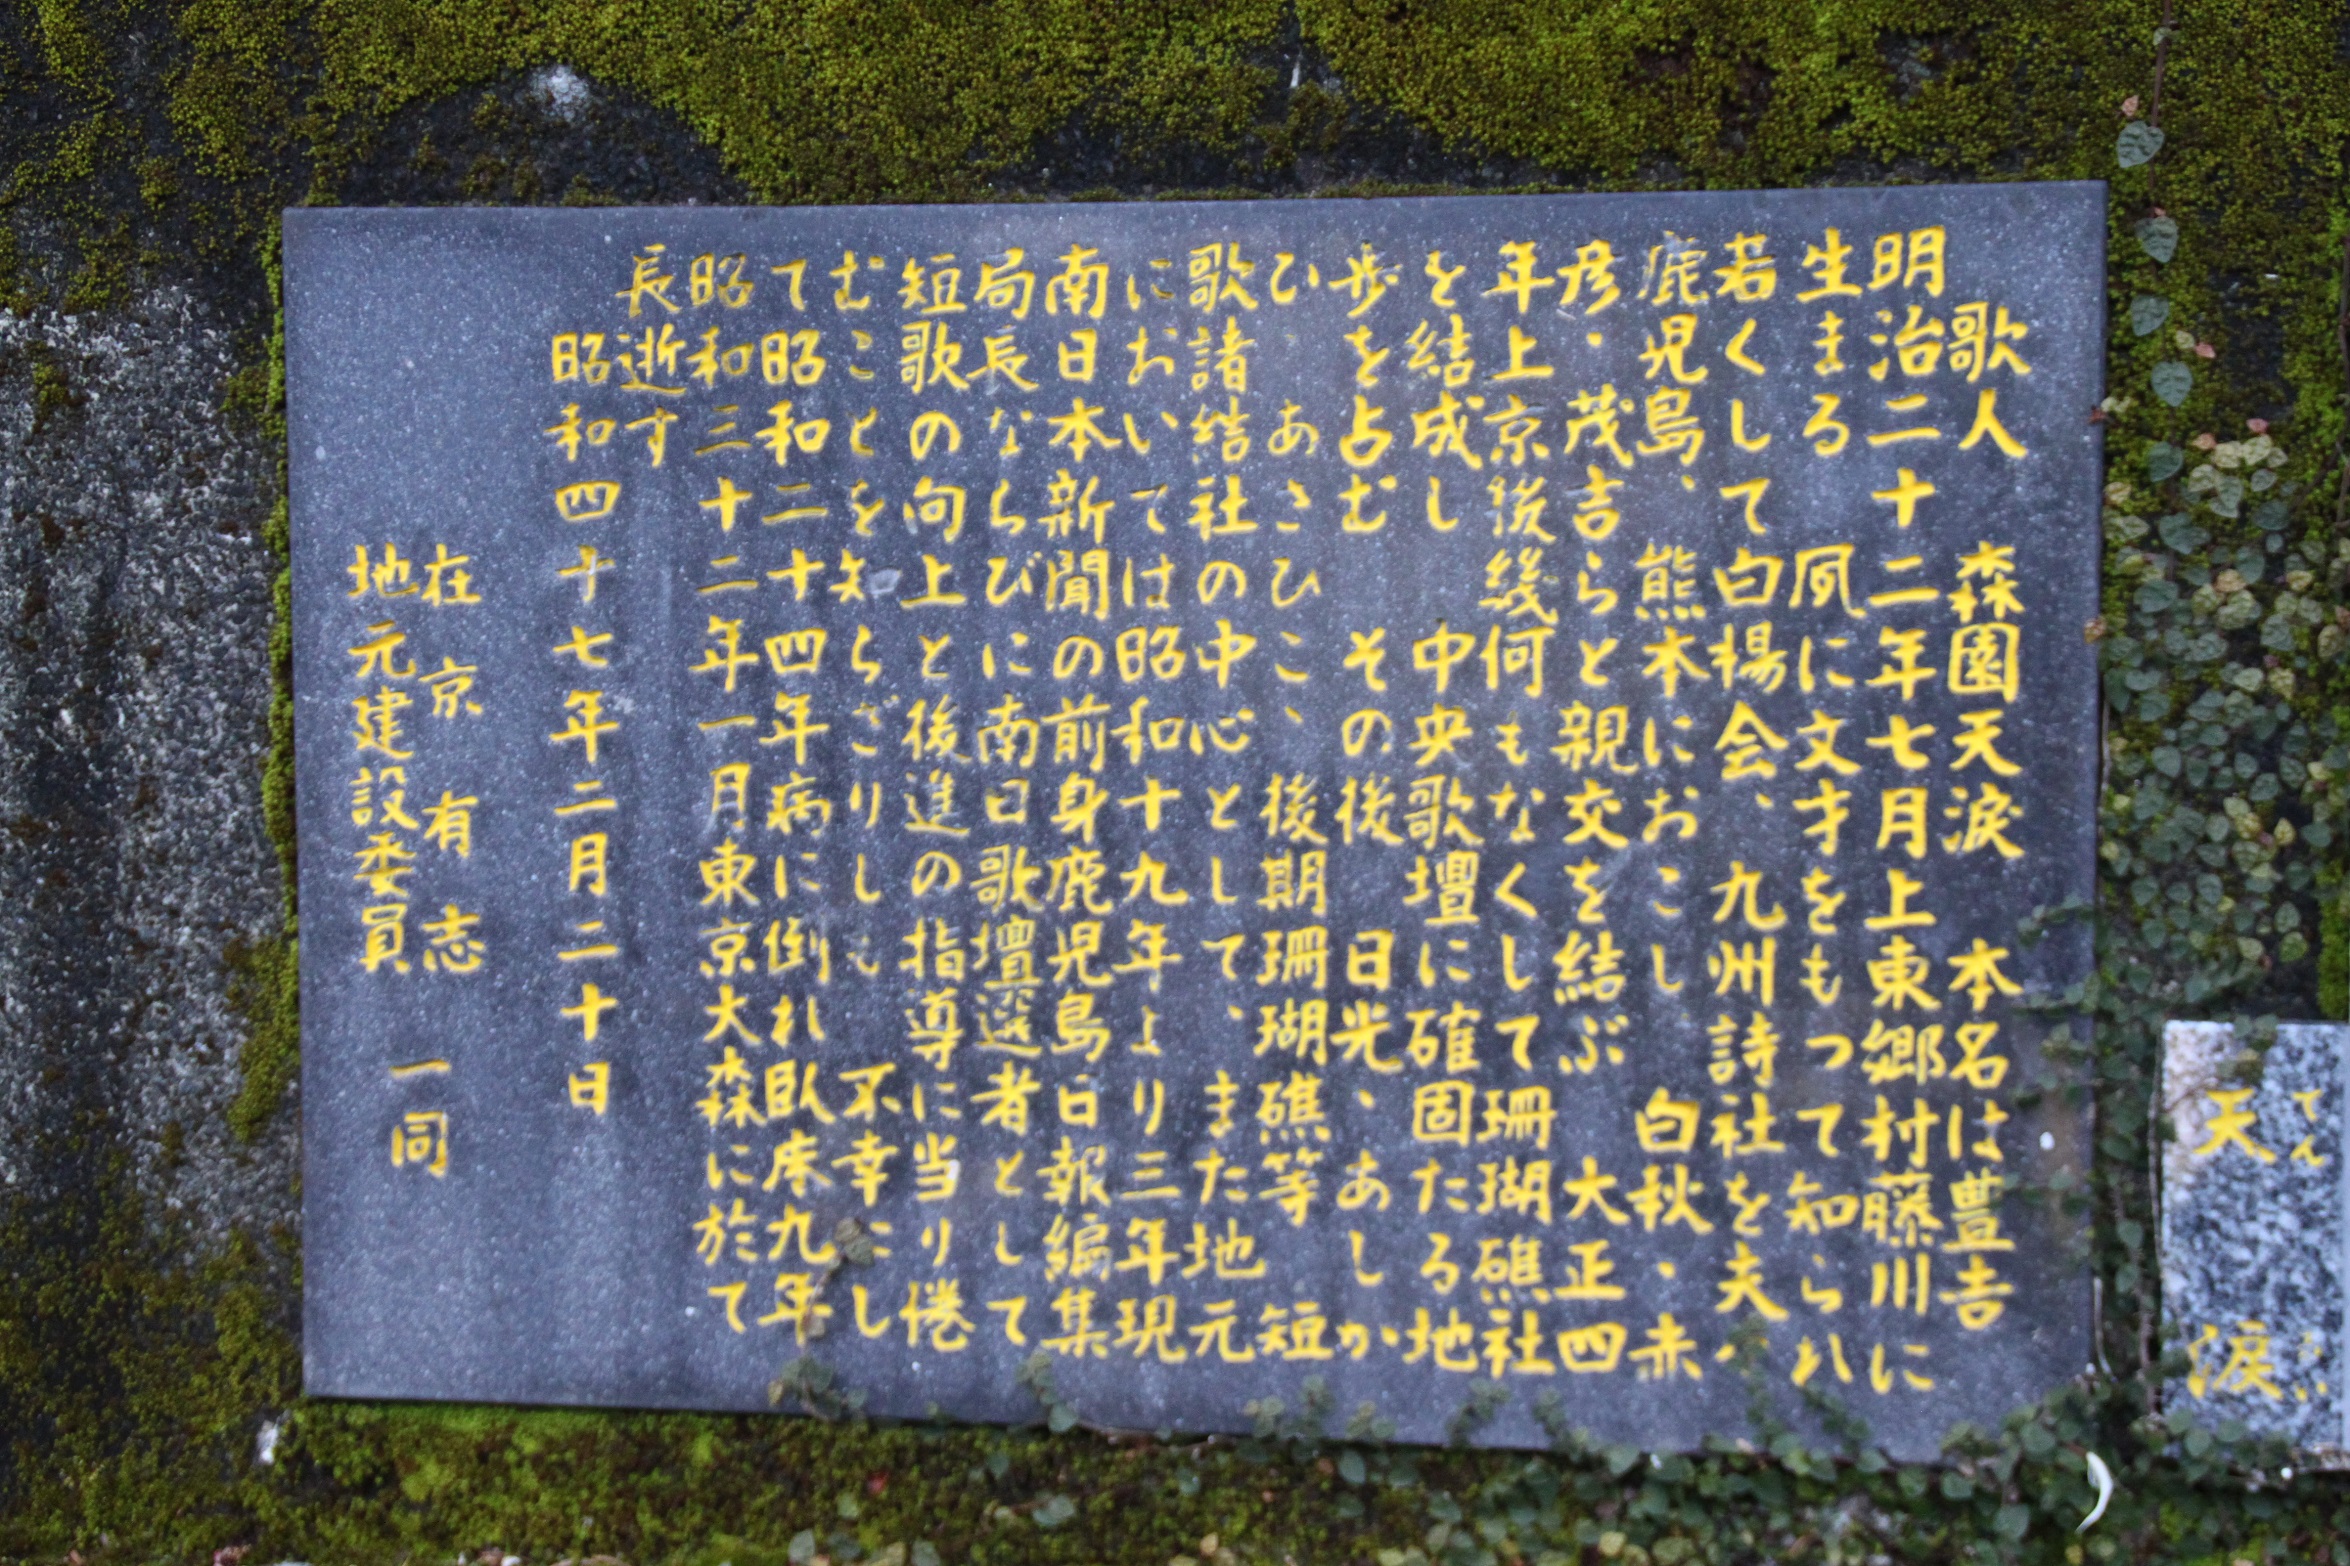 歌人 森園天涙 本名は豊吉
明治二十二年七月上東郷村藤川に
生まる 夙に文才をもって知られ
若くして白楊会、九州詩社を夫々
鹿児島、熊本におこし 白秋・赤
彦・茂吉らと親交を結ぶ 大正四
年上京後幾何もなくして珊瑚礁社
を結成し 中央歌壇に確固たる地
歩を占む その後 日光、あしか
ひ、あさひこ、後期珊瑚礁等 短
歌諸結社の中心として、また地元
においては昭和十九年より三年現
南日本新聞の前身鹿児島日報編集
局長ならびに南日歌壇選者として
短歌の向上と後進の指導に当り倦
むことを知らざりしも 不幸にし
て昭和二十四年病に倒れ臥床九年
昭和三十二年一月東京大森に於て
長逝す
昭和四十七年二月二十日
在京有志
地元建設委員
一同
天涙
てん